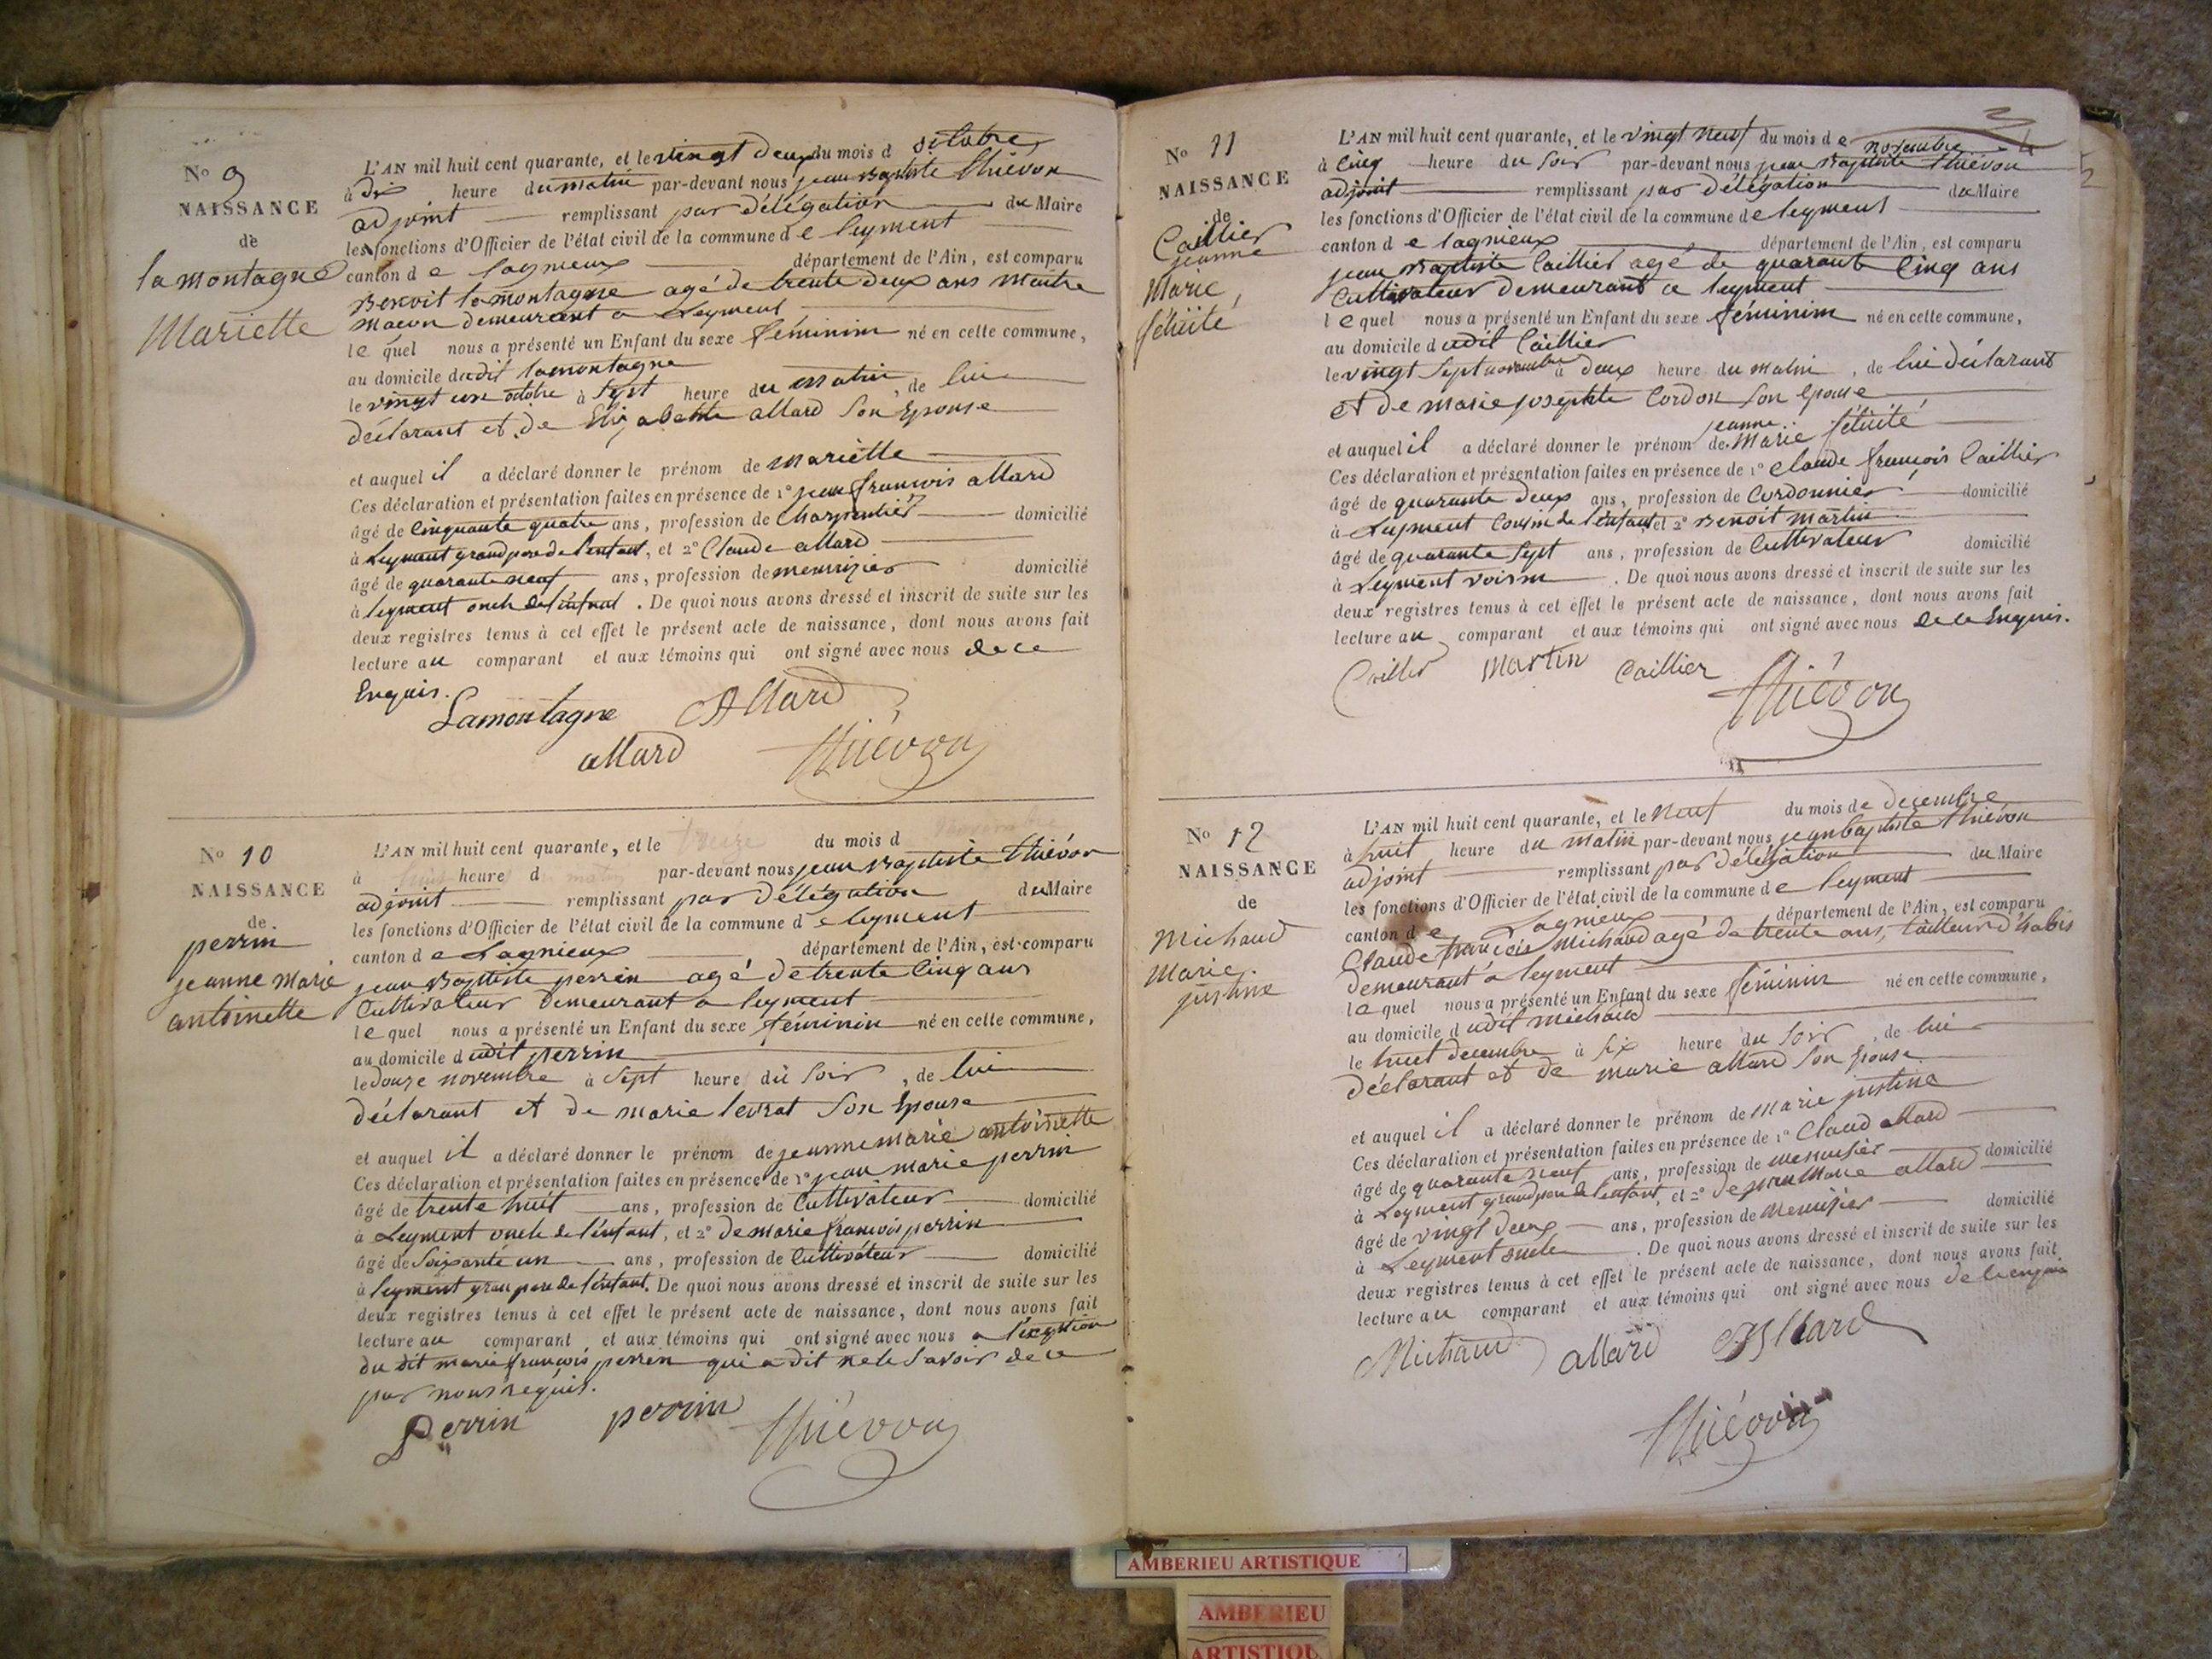 No 9
NAISSANCE
de
la montagne
Mariette
L'AN mil huit cent quarante, et le vingt deux du mois d octobre
à dix heure du matin par-devant nous jean Baptiste thiévon
adjoint remplissant par délégation du Maire
les fonctions d'Officier de l'état civil de la commune de leyment
canton de lagnieux département de l'Ain, est comparu
Benoit lamontagne agé de trente deux ans maitre
macon demeurant a Leyment
lequel nous a présenté un Enfant du sexe féminin né en cette commune,
au domicile dudit lamontagne
le vingt une octobre à sept heure du matin, de lui
déclarant et de Elizabethe allard son Epouse
et auquel il a déclaré donner le prénom de mariette
Ces déclaration et présentation faites en présence de 1° jean francois allard
âgé de cinquante quatre ans, profession de charpentier domicilié
à Leyment grand pere de l'enfant, et 2° Claude allard
âgé de quarante neuf ans, profession de menuizier domicilié
à leyment oncle de l'enfant. De quoi nous avons dressé et inscrit de suite sur les
deux registres tenus à cet effet le présent acte de naissance, dont nous avons fait
lecture au comparant et aux témoins qui ont signé avec nous de ce
Enquis.
Lamontagne Allard
allard thiévon
No 10
NAISSANCE
de
perrin
jeanne marie
antoinette
L'AN mil huit cent quarante, et le treize du mois d novembre
à heure d matin par-devant nous jean Baptiste thiévon
adjoint remplissant par délégation du Maire
les fonctions d'Officier de l'état civil de la commune de leyment
canton de Lagnieux département de l'Ain, est comparu
jean Baptiste perrin agé de trente cinq ans
Cultivateur demeurant a leyment
lequel nous a présenté un Enfant du sexe féminin né en cette commune,
au domicile dudit perrin
le douze novembre à sept heure du soir, de lui
déclarant et de marie levrat son Epouse
et auquel il a déclaré donner le prénom de jeanne marie antoinette
Ces déclaration et présentation faites en présence de 1° jean marie perrin
âgé de trente huit ans, profession de Cultivateur domicilié
à Leyment oncle de l'enfant, et 2° de marie francois perrin
âgé de soixante un ans, profession de Cultivateur domicilié
à leyment gran pere de l'enfant. De quoi nous avons dressé et inscrit de suite sur les
deux registres tenus à cet effet le présent acte de naissance, dont nous avons fait
lecture au comparant et aux témoins qui ont signé avec nous a l'exception
du dit marie françois perrin qui a dit ne le savoir de ce
par nous requis.
Perrin perrin thiévon
No 11
NAISSANCE
de
Caillier
jeanne
Marie
félicité
L'AN mil huit cent quarante, et le vingt neuf du mois de novembre
à cinq heure du soir par-devant nous jean Baptiste thiévon
adjoint remplissant par délégation du Maire
les fonctions d'Officier de l'état civil de la commune de leyment
canton de lagnieux département de l'Ain, est comparu
jean Baptiste Caillier agé de quarante cinq ans
Cultivateur demeurant a leyment
lequel nous a présenté un Enfant du sexe féminin né en cette commune,
au domicile dudit Caillier
le vingt sept novembre à deux heure du matin, de lui déclarant
et de marie josephte Cordon son epouse
jeanne
et auquel il a déclaré donner le prénom de marie félicité
Ces déclaration et présentation faites en présence de 1° Claude françois Caillier
âgé de quarante deux ans, profession de Cordonnier domicilié
à Leyment Cousin de l'enfant, et 2° Benoit martin
âgé de quarante sept ans, profession de Cultivateur domicilié
à Leyment voisin. De quoi nous avons dressé et inscrit de suite sur les
deux registres tenus à cet effet le présent acte de naissance, dont nous avons fait
lecture au comparant et aux témoins qui ont signé avec nous de ce Enquis.
Caillier Martin Caillier
thiévon
No 12
NAISSANCE
de
Michaud
Marie
justine
L'AN mil huit cent quarante, et le neuf du mois de decembre
à huit heure du matin par-devant nous jean baptiste thiévon
adjoint remplissant par délégation du Maire
les fonctions d'Officier de l'état civil de la commune de leyment
canton de Lagnieux département de l'Ain, est comparu
Claude françois Michaud agé de trente ans, tailleur d'habis
demeurant a leyment
lequel nous a présenté un Enfant du sexe féminin né en cette commune,
au domicile dudit michaud
le huit decembre à six heure du soir, de lui
déclarant et de marie allard son Epouse
et auquel il a déclaré donner le prénom de marie justine
Ces déclaration et présentation faites en présence de 1° Claud allard
âgé de quarante neuf ans, profession de menuisier domicilié
à Leyment grand pere de l'enfant, et 2° de jean marie allard
âgé de vingt deux ans, profession de Menuizier domicilié
à Leyment oncle. De quoi nous avons dressé et inscrit de suite sur les
deux registres tenus à cet effet le présent acte de naissance, dont nous avons fait
lecture au comparant et aux témoins qui ont signé avec nous de ce enquis
Michaud allard Allard
thiévon
AMBERIEU ARTISTIQUE
AMBERIEU
ARTISTIQU